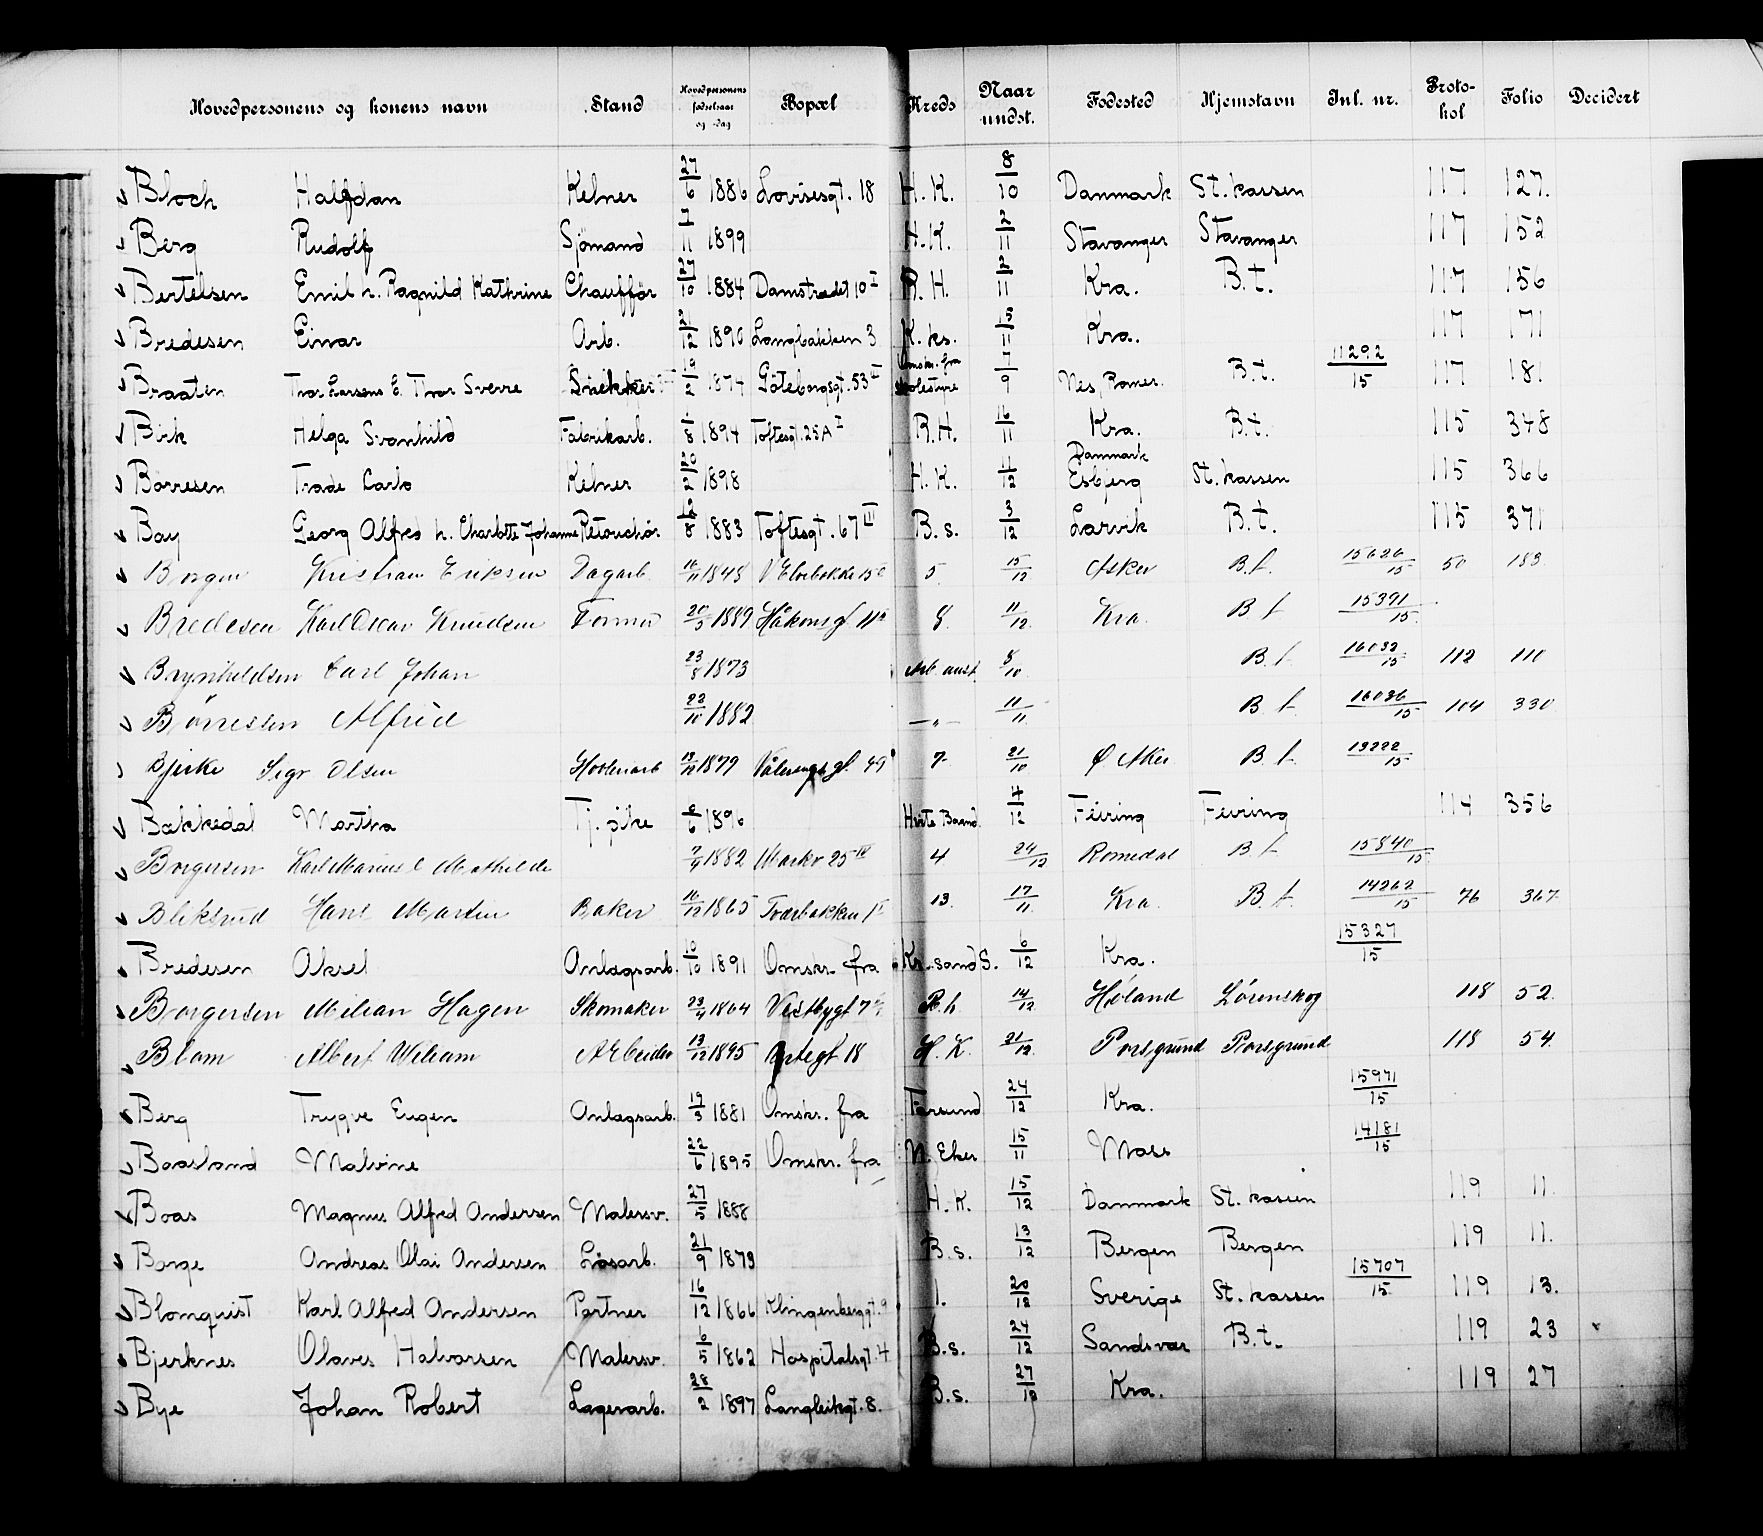 Hovedpersonens og konens navn Stand Hovedpersonens fødselsaar og -dag Bopæl Kreds Naar undst. Fødested Hjemstavn Inl. nr. Proto-kol Folio Decidert
Bloch Halfdan Kelner 27/6 1886 Lovisesgt. 18 H. K. 8/10 Danmark St. kassen 117 127.
Berg Rudolf Sjømand 7/11 1899 H. K. 2/11 Stavanger Stavanger 117 152
Bertelsen Emil h. Ragnild Kathrine Chauffør 27/10 1884 Damstrædet 10 I R. H. 2/11 Kra. B. t. 117 156
Bredesen Einar Arb. 21/12 1890 Langbakken 3 K. ks. 15/11 Kra. 117 171
Braaten Thor Larsens E. Thor Sverre Snekker 19/2 1874 Göteborgsgt. 53 II Omskr. fra Skolestyre 7/9 Nes, Romer. B. t. 11292/15 117 181
Birk Helga Svanhild Fabrikarb. 1/8 1894 Toftesgt. 25A I R. H. 16/11 Kra. B. t. 115 348
Børresen Trade Carlo Kelner 20/2 1898 H. K. 4/12 Danmark Esbjerg St. kassen 115 366
Bay Georg Alfred h. Charlotte Johanne Retouchør. 12/8 1883 Toftesgt. 67 III B. s. 3/12 Larvik B. t. 115 371
Borgen Kristian Eriksen Dagarb. 16/11 1848 5. 15/12 Asker B. t. 15626/15 50 183
Bredesen Karl Oscar Knudsen Former 20/5 1889 Håkonsgt. 11 8. 11/12 Kra. B. t. 15391/15
Brynhildsen Carl Johan 23/8 1873 Arb. anst. 8/10 B. t. 16032/15 112 110
Børresen Alfred 22/10 1882 — " — 11/11 B. t. 16036/15 104 330
Bjerke Sigv Olsen 13/12 1879 Vålerengt gt. 49 7 21/10 Ø Aker B. t. 13222/15
Bækkedal Martha Tj. pike 6/6 1896 Hvite Baand. 4/12 Feiring Feiring 114 356
Borgersen Karl Marius E Mathilde 7/4 1882 Markv 25 IV 4 24/12 Romedal B. t. 15840/15
Bliksrud Hans Martin Baker 16/12 1865 Tværbakken 1 13. 17/11 Kra. B. t. 14262/15 76 367
Bredesen Aksel Anlægsarb. 10/10 1891 Omskr. fra Kr.sand S. 6/12 Kra. 15327/15
Borgersen Milian Hagen Skomaker 23/4 1864 Vestbygt 7 R. h 14/12 Høland Lörenskog 118 52.
Blom Albert Wiliam Arbeider 13/12 1895 18 H. K. 21/12 Porsgrund Porsgrund 118 54.
Berg Trygve Eugen Anlægsarb. 19/3 1881 Omskr. fra Farsund 24/12 Kra. 15971/15
Baasland Malvine 22/6 1895 Omskr. fra N. Eker 15/11 Moss 14181/15
Boas Magnus Alfred Andersen Malersv. 27/5 1888 H. K. 15/12 Danmark St. kassen 119 11.
Borge Andreas Olai Andersen Løsarb. 21/9 1873 B. s. 13/12 Bergen Bergen 119 11.
Blomquist Karl Alfred Andersen Portner 16/12 1866 Klingenberggt. 9 1. 20/12 Sverige St. kassen 15707/15 119 13.
Bjerknes Olaves Halvorsen Malersv. 6/5 1862 Hospitalsgt. 4 B. s. 24/12 Sandsvær B. t. 119 23
Bye Johan Robert Lagerarb. 28/2 1897 Langleikgt. 8. B. s. 27/12 Kra. 119 27